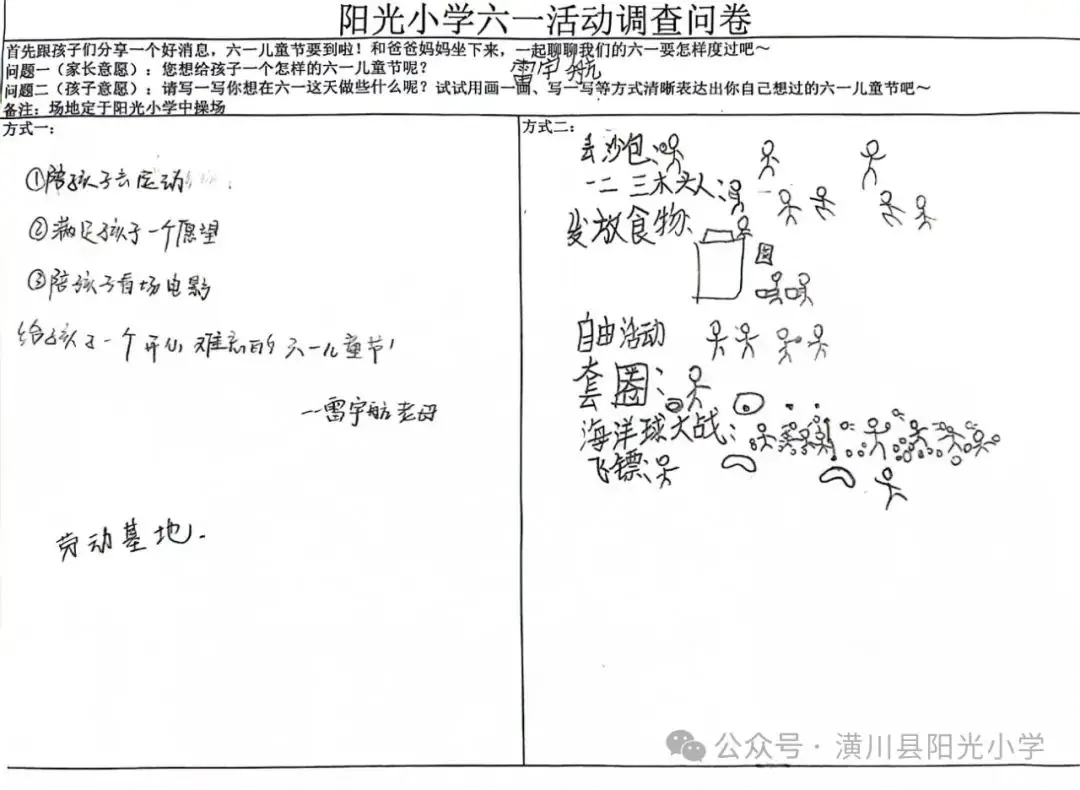 阳光小学六一活动调查问卷
首先跟孩子们分享一个好消息，六一儿童节要到啦！和爸爸妈妈坐下来，一起聊聊我们的六一要怎样度过吧～
问题一（家长意愿）：您想给孩子一个怎样的六一儿童节呢？
雷宇航
问题二（孩子意愿）：请写一写你想在六一这天做些什么呢？试试用画一画、写一写等方式清晰表达出你自己想过的六一儿童节吧～
备注：场地定于阳光小学中操场
方式一：
①陪孩子去运动
②满足孩子一个愿望
③陪孩子看场电影
给孩子一个开心难忘的六一儿童节！
--雷宇航老母
劳动基地.
方式二：
丢沙包：
一二三木头人：
发放食物：
自由活动
套圈：
海洋球大战：
飞镖：
公众号·潢川县阳光小学